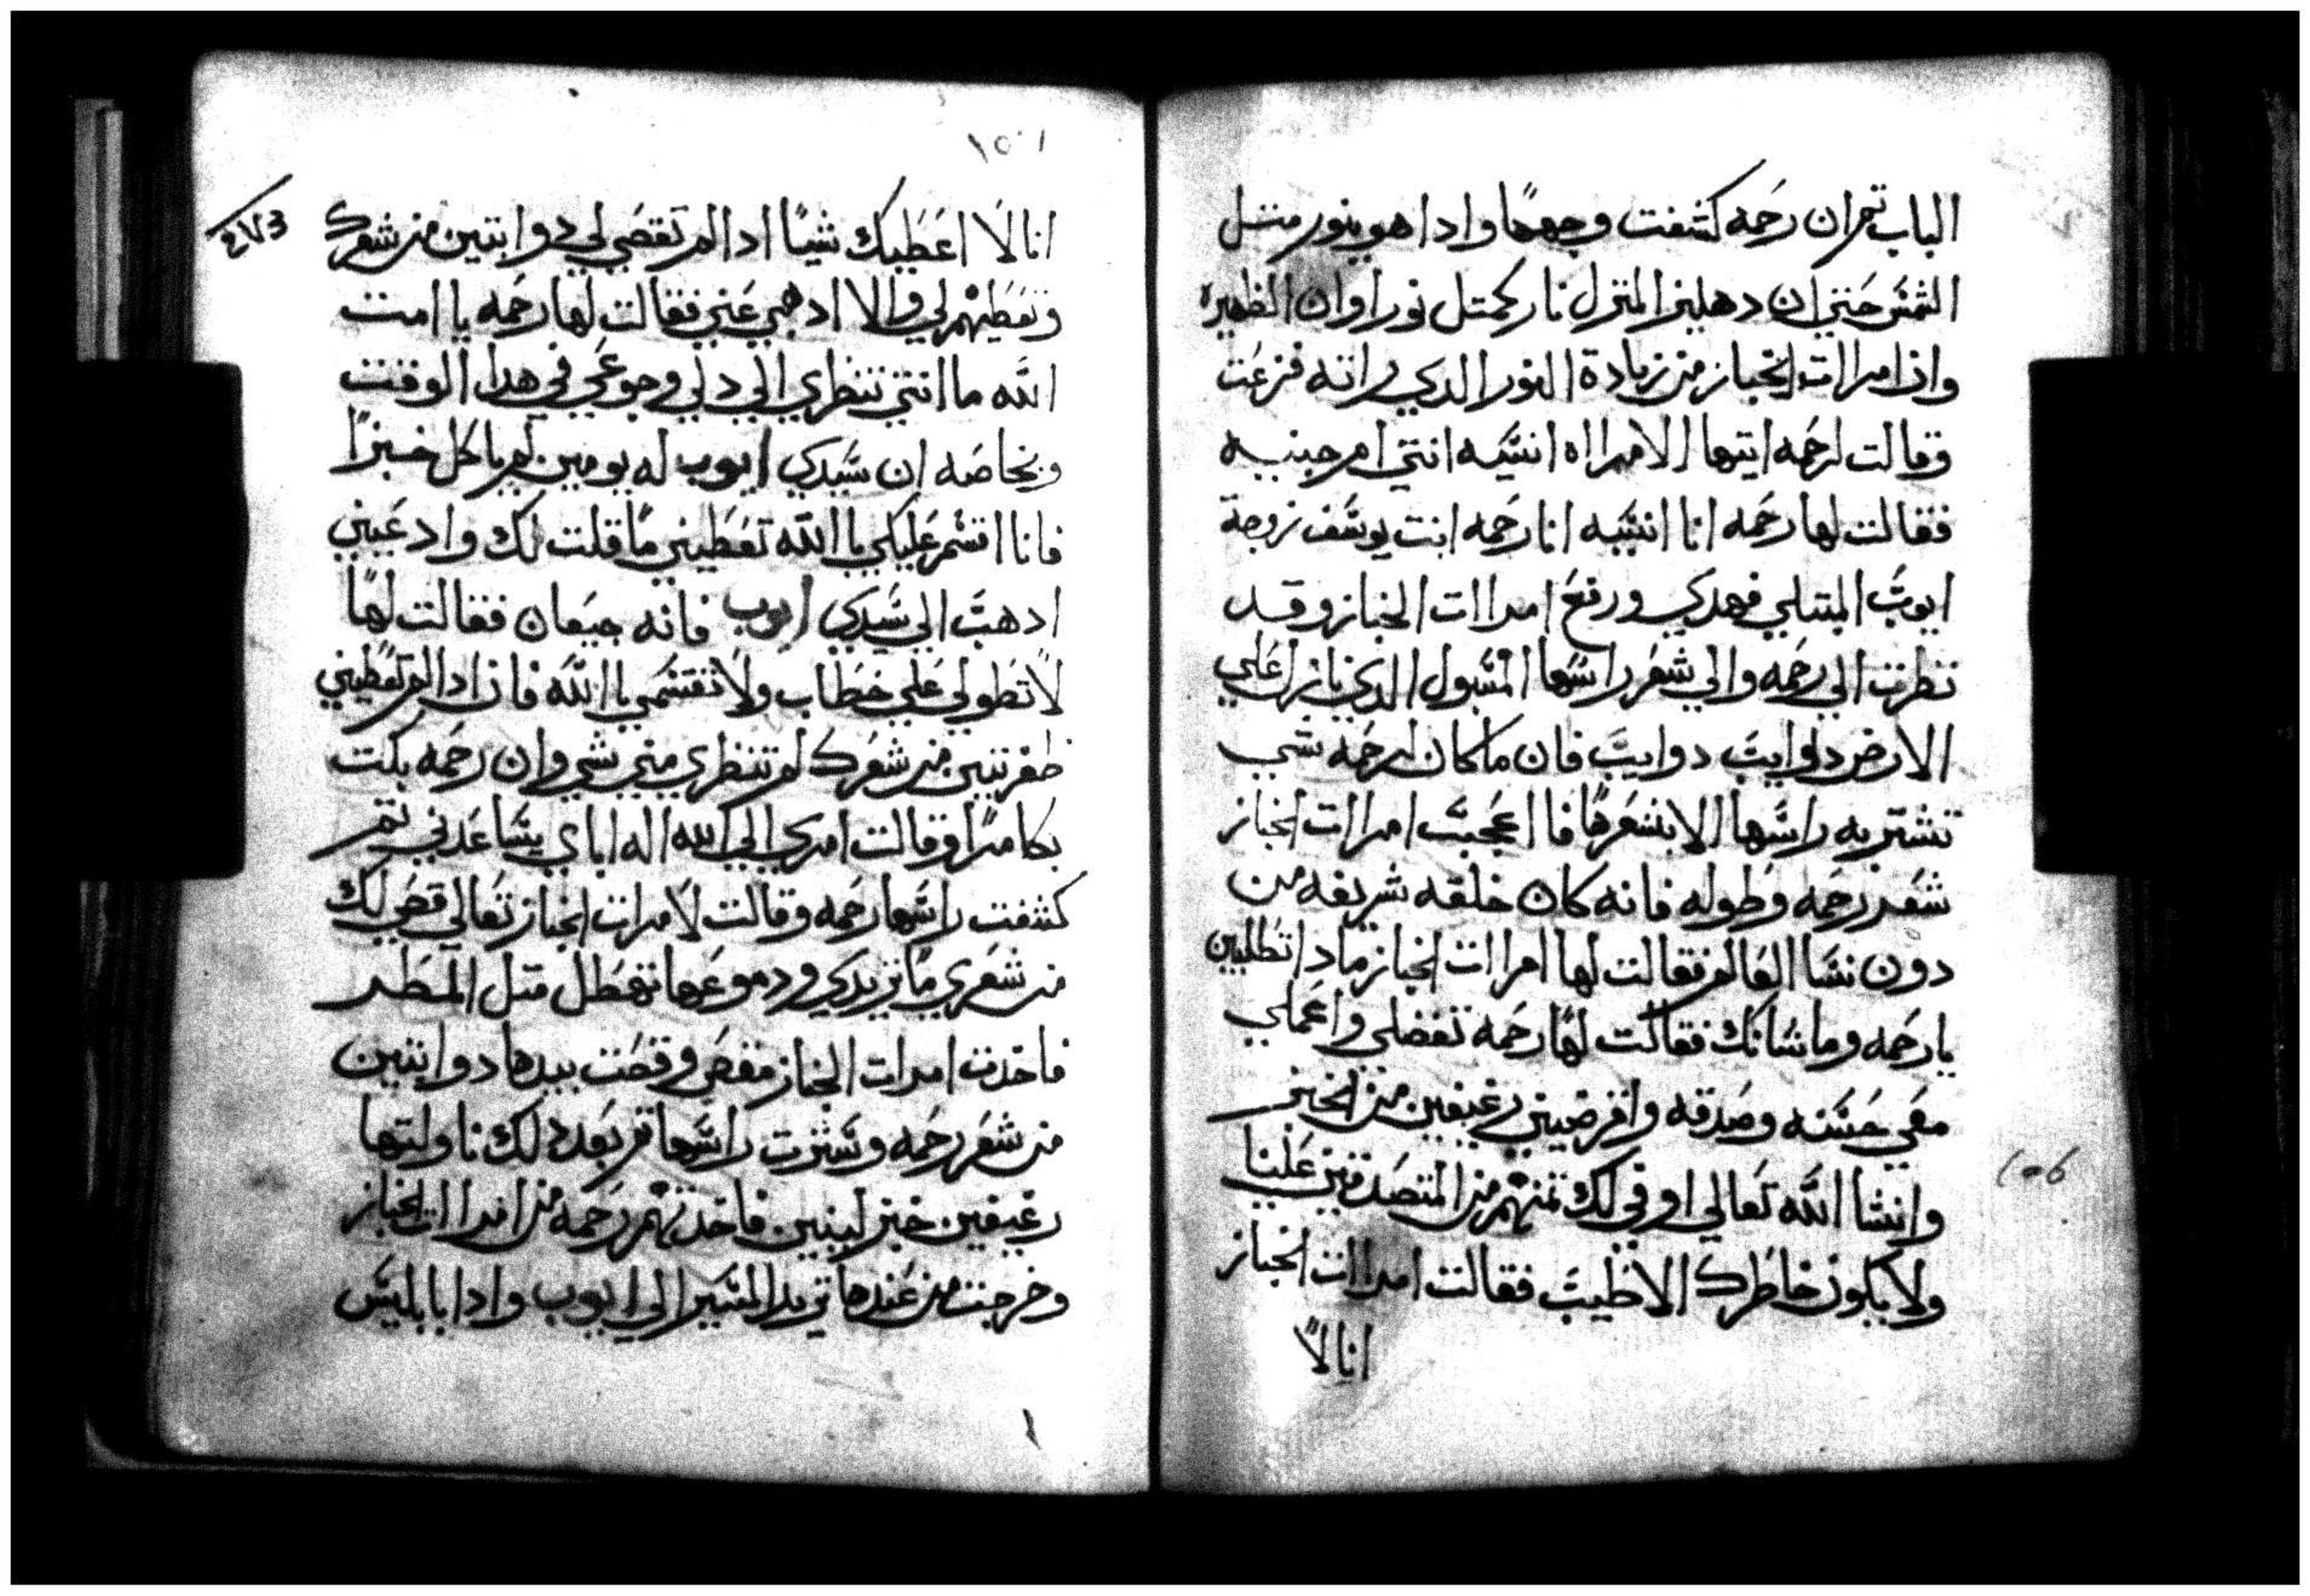 الباب تم ان رحمه كشفت وجهها وادا هو بنور متل
الشمس حتي ان دهليز المنزل نار كمتل نورا وان الظهيره
وان امراات الخباز من زيادة النور الدي راته فزعت
وقالت لرحمه ايتها الامرااه انسيه انتي ام جنيه
فقالت لها رحمه انا انسيه انا رحمه ابنت يوسف زوجة
ايوب المبتلي فهدي ورفع امراات الخباز وقد
نظرت الي رحمه والي شعر راسها المسبول الدي نازل علي
الارض دوايب دوايب فان ما كان لرحمه شي
تشتر به راسها الا بشعرها فا اعجبت امراات الخباز
شعر رحمه وطوله فانه كان خلقه شريفه من
دون نسا العالم فقالت لها امراات الخباز مادا تطلبين
يا رحمه وما شانك فقالت لها رحمه تفضلي واعملي
معي حسنه وصدقه واقرضيني رغيفين من الخبز
وانشا الله تعالي اوفي لك تمنهم من المتصدقين علينا
ولا يكون خاطرك الا طيب فقالت امراات الخباز
انا لا
١٥٦
١٥٠١
انا لا اعطيك شيا ادا لم تقصي لي دوابتين من شعرك
وتعطيهم لي والا ادهبي عني فقالت لها رحمه يا امت
الله ما انتي تنظري الي دلي وجوعي في هدا الوقت
وبخاصه ان سيدي ايوب له يومين لم ياكل خبزا
فانا اقسم عليكي با الله تعطيني ما قلت لك وادعيني
ادهب الي سيدي ايوب فانه جيعان فقالت لها
لا تطولي علي خطاب ولا تقتسمي با الله فان ادا لم تعطيني
ظفرتين من شعرك لم تنظري مني شي وان رحمه بكت
بكا مرا وقالت امري الي الله اله اباي يساعدني تم
كشفت راسها رحمه وقالت لامرات الخباز تعالي قصي لك
من شعري ما تريدي ودموعها تهطل متل المطر
فاخدت امرات الخباز مقص وقصت بيدها دوابتين
من شعر رحمه وسترت راسها تم بعد دلك ناولتها
رغيفين خبز لينين فاخدتهم رحمه من امراات الخباز
وخرجت من عندها تريد المسير الي ايوب وادا بابليس